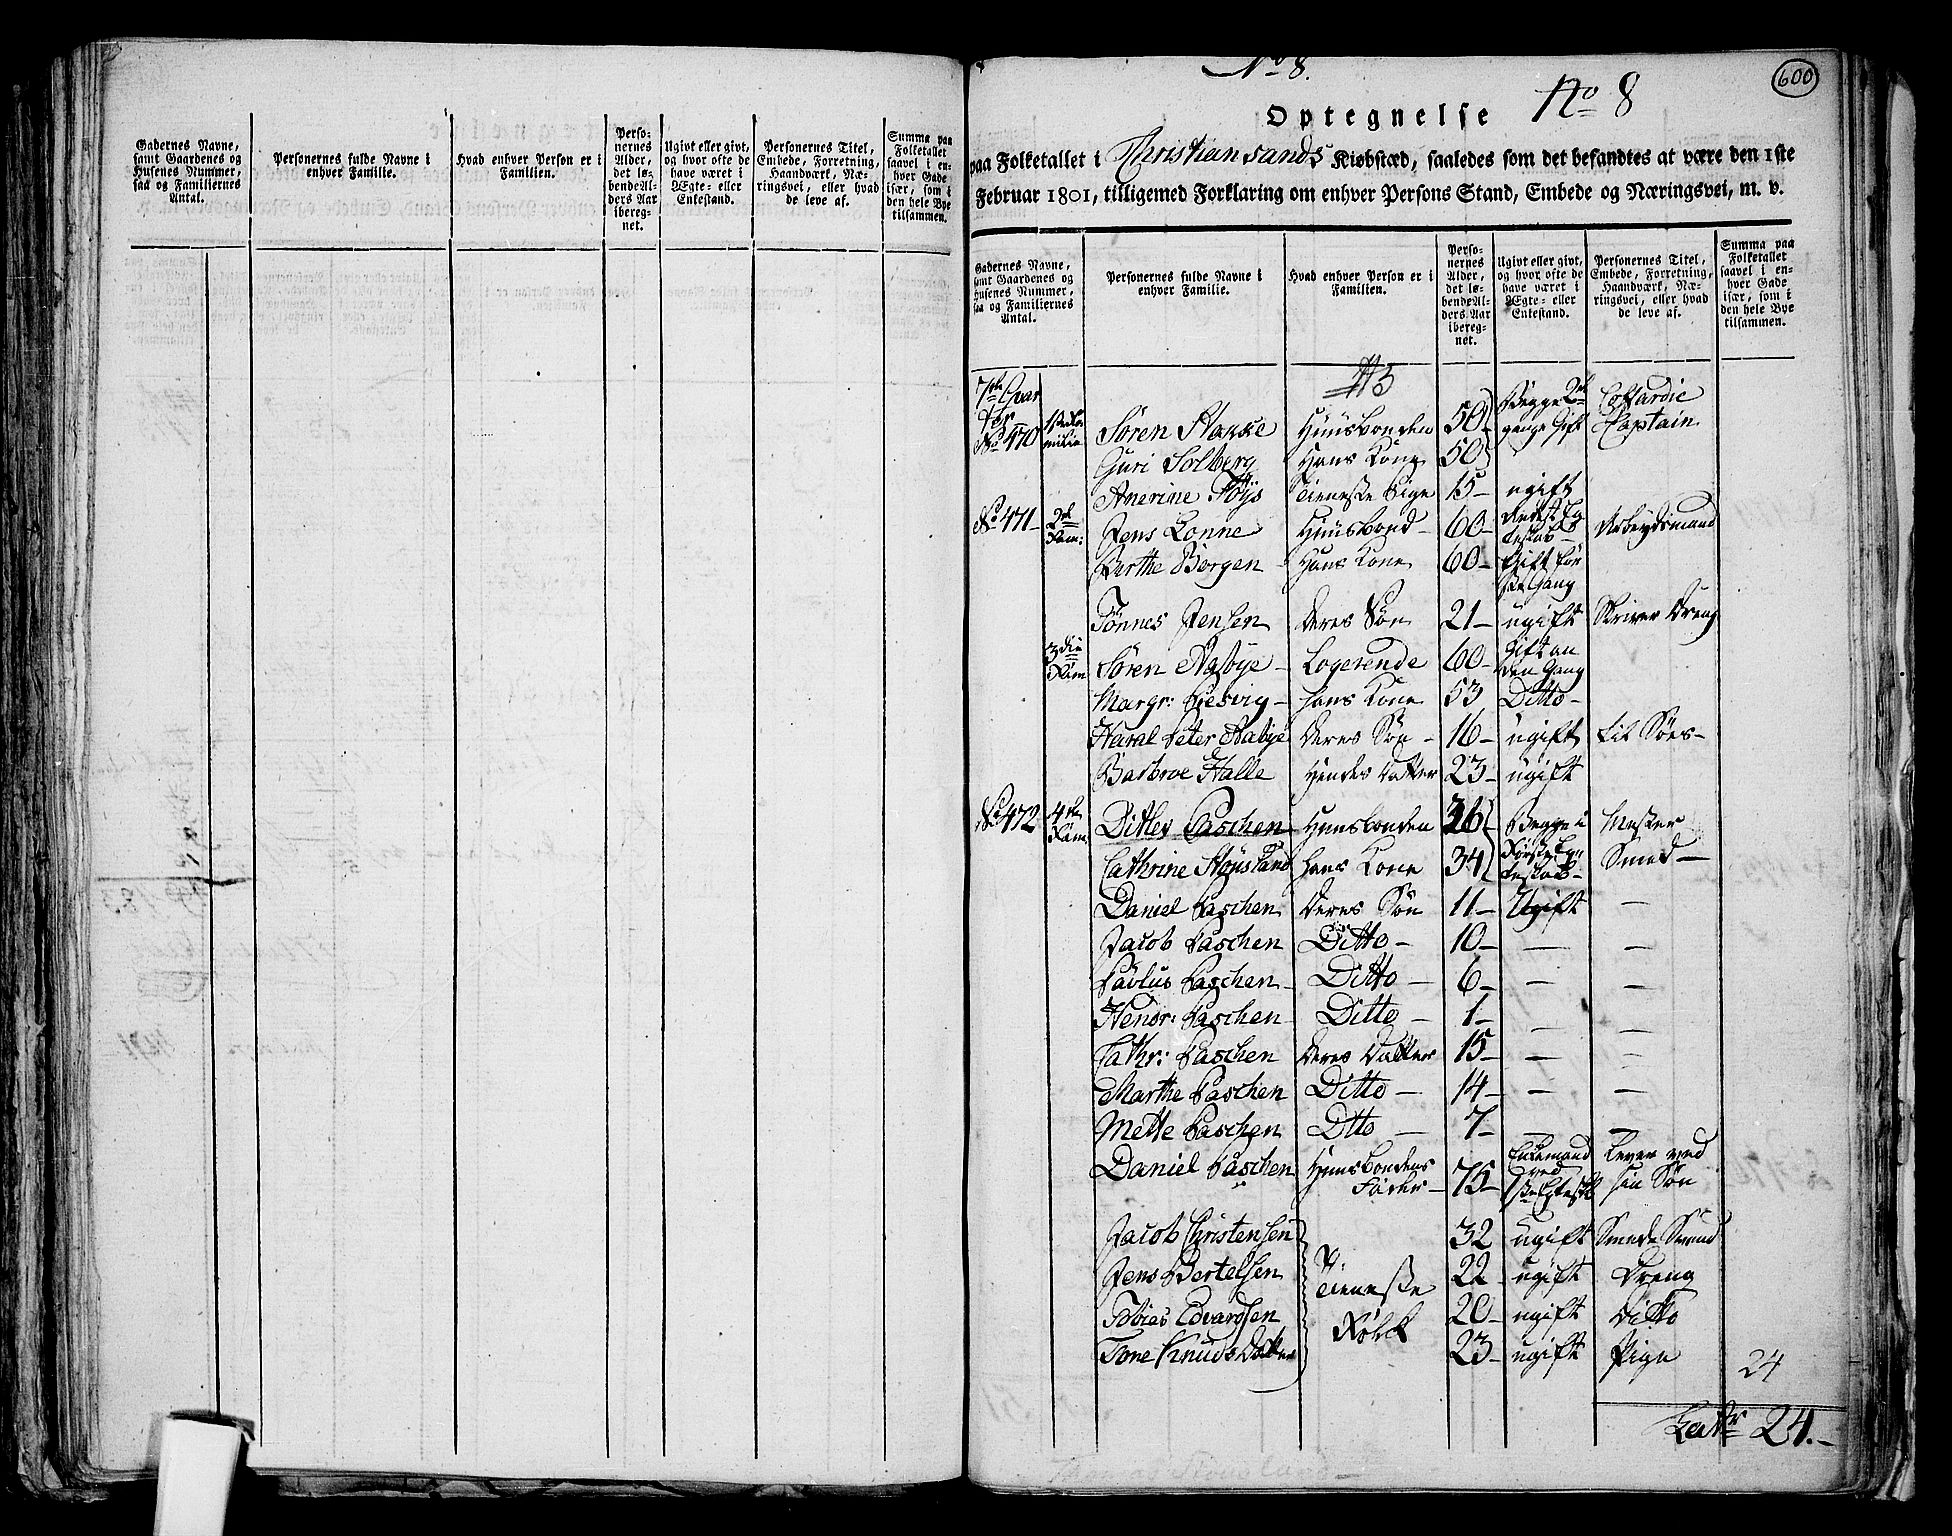 Gadernes Navne, samt Gaardenes og Husenes Nummer, saa og Familiernes Antal.
Personernes fulde Navne i enhver Familie.
Hvad enhver Person er i Familien.
Personernes Alder, det løbende Alders Aar iberegnet.
Ugivt eller givt, og hvor ofte de have været i Ægte- eller Enkestand.
Personernes Titel, Embede, Forretning, Haandværk, Næringsvei, eller hvad de leve af.
Summa paa Folketallet saavel i enhver Gade især, som i den hele Bye tilsammen.
No 8.
No 8
600
Optegnelse
paa Folketallet i Christiansands Kiøbstæd, saaledes som det befandtes at være den 1ste
Februar 1801, tilligemed Forklaring om enhver Persons Stand, Embede og Næringsvei, m. v.
Gadernes Navne, samt Gaardenes og Husenes Nummer, saa og Familiernes Antal.
Personernes fulde Navne i enhver Familie.
Hvad enhver Person er i Familien.
Personernes Alder, det løbende Alders Aar iberegnet.
Ugivt eller givt, og hvor ofte de have været i Ægte- eller Enkestand.
Personernes Titel, Embede, Forretning, Haandværk, Næringsvei, eller hvad de leve af.
Summa paa Folketallet saavel i enhver Gade især, som i den hele Bye tilsammen.
No 470 Søren Huusbonden 50 Begge 2den gange Gift Captain
Guri Solberg Hans Kone 50
Anerine Tieneste Pige 15 ugift
No 471 2de Fam: Jens Lonne Huusbond 60 Arbeydsmand
Berthe Borgen Hans Kone 60 Gift før
Tønnes Jensen deres Søn 21 ugift Skriver Dreng
3die Fam Søren Aabye Logerende 60 Gift an den Gang
Margr: Hans Kone 53 Ditto
Peter Aabye deres Søn 16 ugift til Søes
Barbroe Halle Hendes Datter 23 ugift
No 472 4de Fam Ditlev Paschen Huusbonden 36 Begge i Mester
Cathrine Hans Kone 34 Første Egteskab Smed
Daniel Paschen Deres Søn 11 Ugift —
Jacob Paschen Ditto 10 — —
Paulus Paschen Ditto 6 — —
Hendr: Paschen Ditto 1 — —
Cathr: Paschen Deres Datter 15 — —
Marthe Paschen Ditto 14 — —
Mette Paschen Dtto 7 — —
Daniel Paschen Huusbondens Fader 75 Enkemand ved Lever ved sin Søn
Jacob Christensen 32 ugift Smede Svend
Jens Bertelsen Tieneste 22 ugift Dreng
Tobias Edvardsen Folck 20 ugift Ditto
Tone Knuds Datter 23 ugift Pige 24
24.